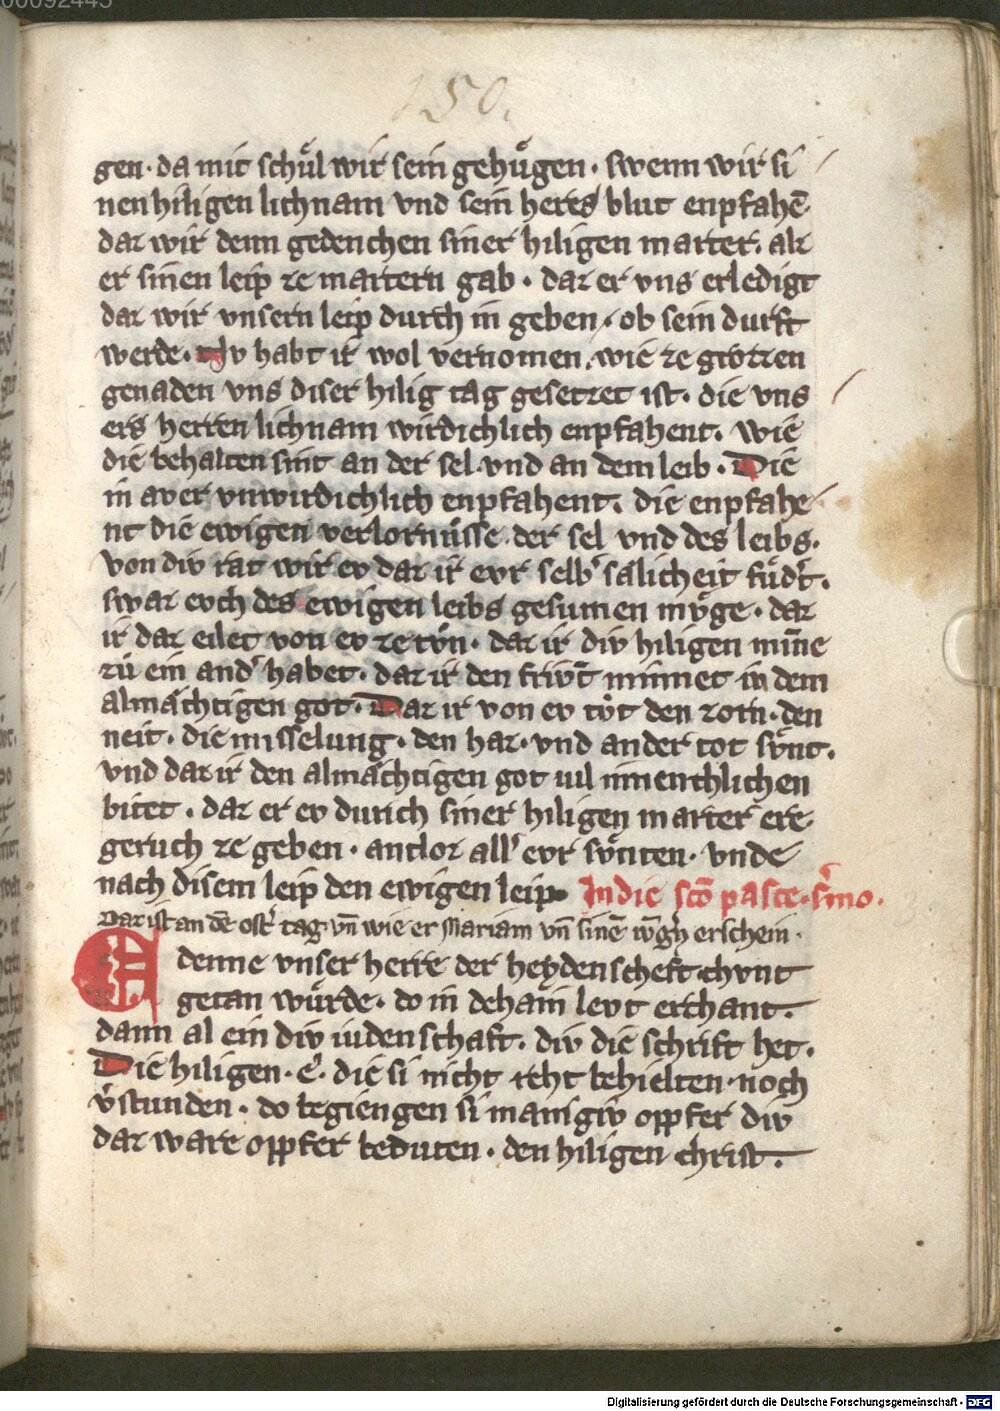 00092445
150.
gen · da mit schuͤl wir sein gehuͤgen · swenn wir si
nen hiligen lichnam vnd sein heres blut enpfahē·
daz wir denn gedenchen siner hiligen marter. alz
er sinen leip ze martern gab · daz er vns erledigt
daz wir vnsern leip durch in geben · ob sein durft
werde · Nv habt ir wol vernomen. wie ze grozzen
genaden vns diser hilig tag gesetzet ist · die vns
ers herren lichnam wirdichlich enpfahent. wie
die behalten sint an der sel · vnd an dem leib · Die
in aver vnwirdichlich enpfahent. die enpfahe
nt die ewigen verlornüsse · der sel vnd des leibs.
von div rat wir ev daz ir evr selb' sålicheit fůdt'.
swaz evch des ewigen leibs gesumen mvͤge · daz
ir daz eilet von ev ze tůn · daz ir div hiligen min̄e
zů ein and' habet · daz ir den frivͦt minnet in dem
almåchtigen got · Daz ir von ev tvͦt den zorn · den
neit · die misselung · den haz · vnd ander tot svͤnt.
vnd daz ir den almåchtigen got vil innenchlichen
bitet · daz er ev durich siner hiligen marter ere
geruch ze geben · antloz all' evr svͤnten · vnde
nach disem leip den ewigen leip· In die sc̄o pasce · s'mo.
Daz ist an dē ost' tag · vn̄ wie er Mariam vn̄ sinē ivͦg'n erschein ·
E denne vnser herre der heydenscheft · chvnt
getan wuͤrde · do in dehain levt erchant.
dann al ein div iudenschaft. div die schrift het.
Die hiligen · e. die si nicht reht behielten · noch
v'stunden · do begiengen si manigiv oppfer div
daz ware oppfer beduten · den hiligen christ.
Digitalisierung gefördert durch die Deutsche Forschungsgemeinschaft - DFG